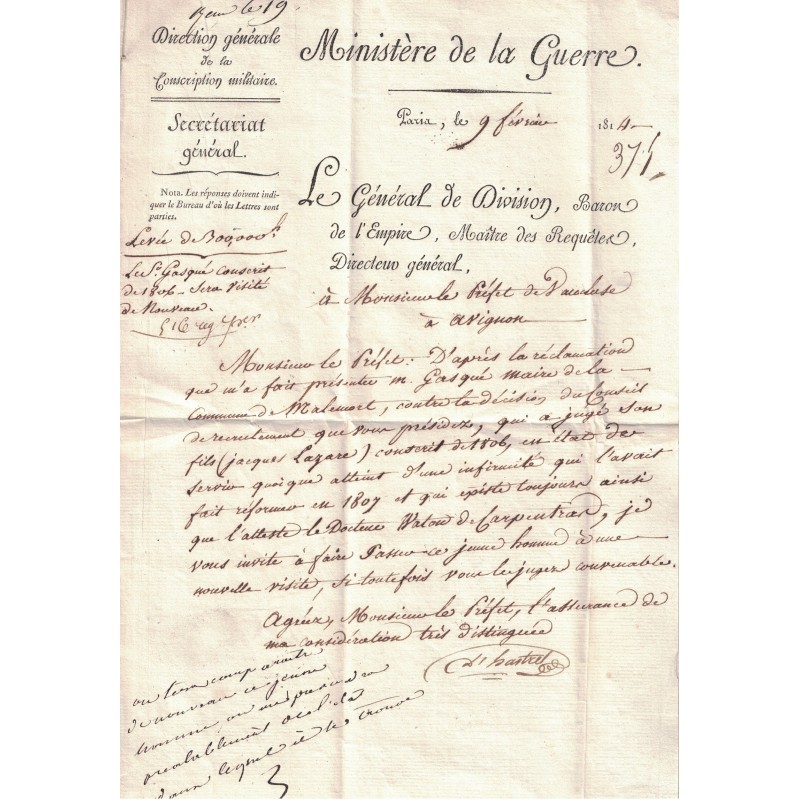 le 19
Direction générale
de la
Conscription militaire.
Secrétariat
général.
Nota. Les réponses doivent indi-
quer le Bureau d'où les Lettres sont
parties.
Levée de 300,000 h.
Le Sr. Gasqué conscrit
de 1806 - Sera visité
de Nouveau.
Ministère de la Guerre.
Paris, le 9 février 1814
375
Le Général de Division, Baron
de l'Empire, Maître des Requêtes,
Directeur général,
à Monsieur le Préfet de Vaucluse
à avignon
Monsieur le Préfet. D'après la réclamation
que m'a fait présenter m. Gasqué maire de la
Commune de Malemort, contre la décision du Conseil
de recrutement que vous présidez, qui a jugé son
fils (jacques Lazare) conscrit de 1806, en état de
servir quoique atteint d'une infirmité qui l'avait
fait réformer en 1807 et qui existe toujours ainsi
que l'atteste le Docteur Waton de Carpentras, je
vous invite à faire Passer ce jeune homme à une
nouvelle visite, si toutefois vous le jugez convenable.
Agréez, Monsieur le Préfet, l'assurance de
ma considération très distinguée
D'hastrel
de nouveau ce jeune
homme
préalablement
dans lequel il se trouve